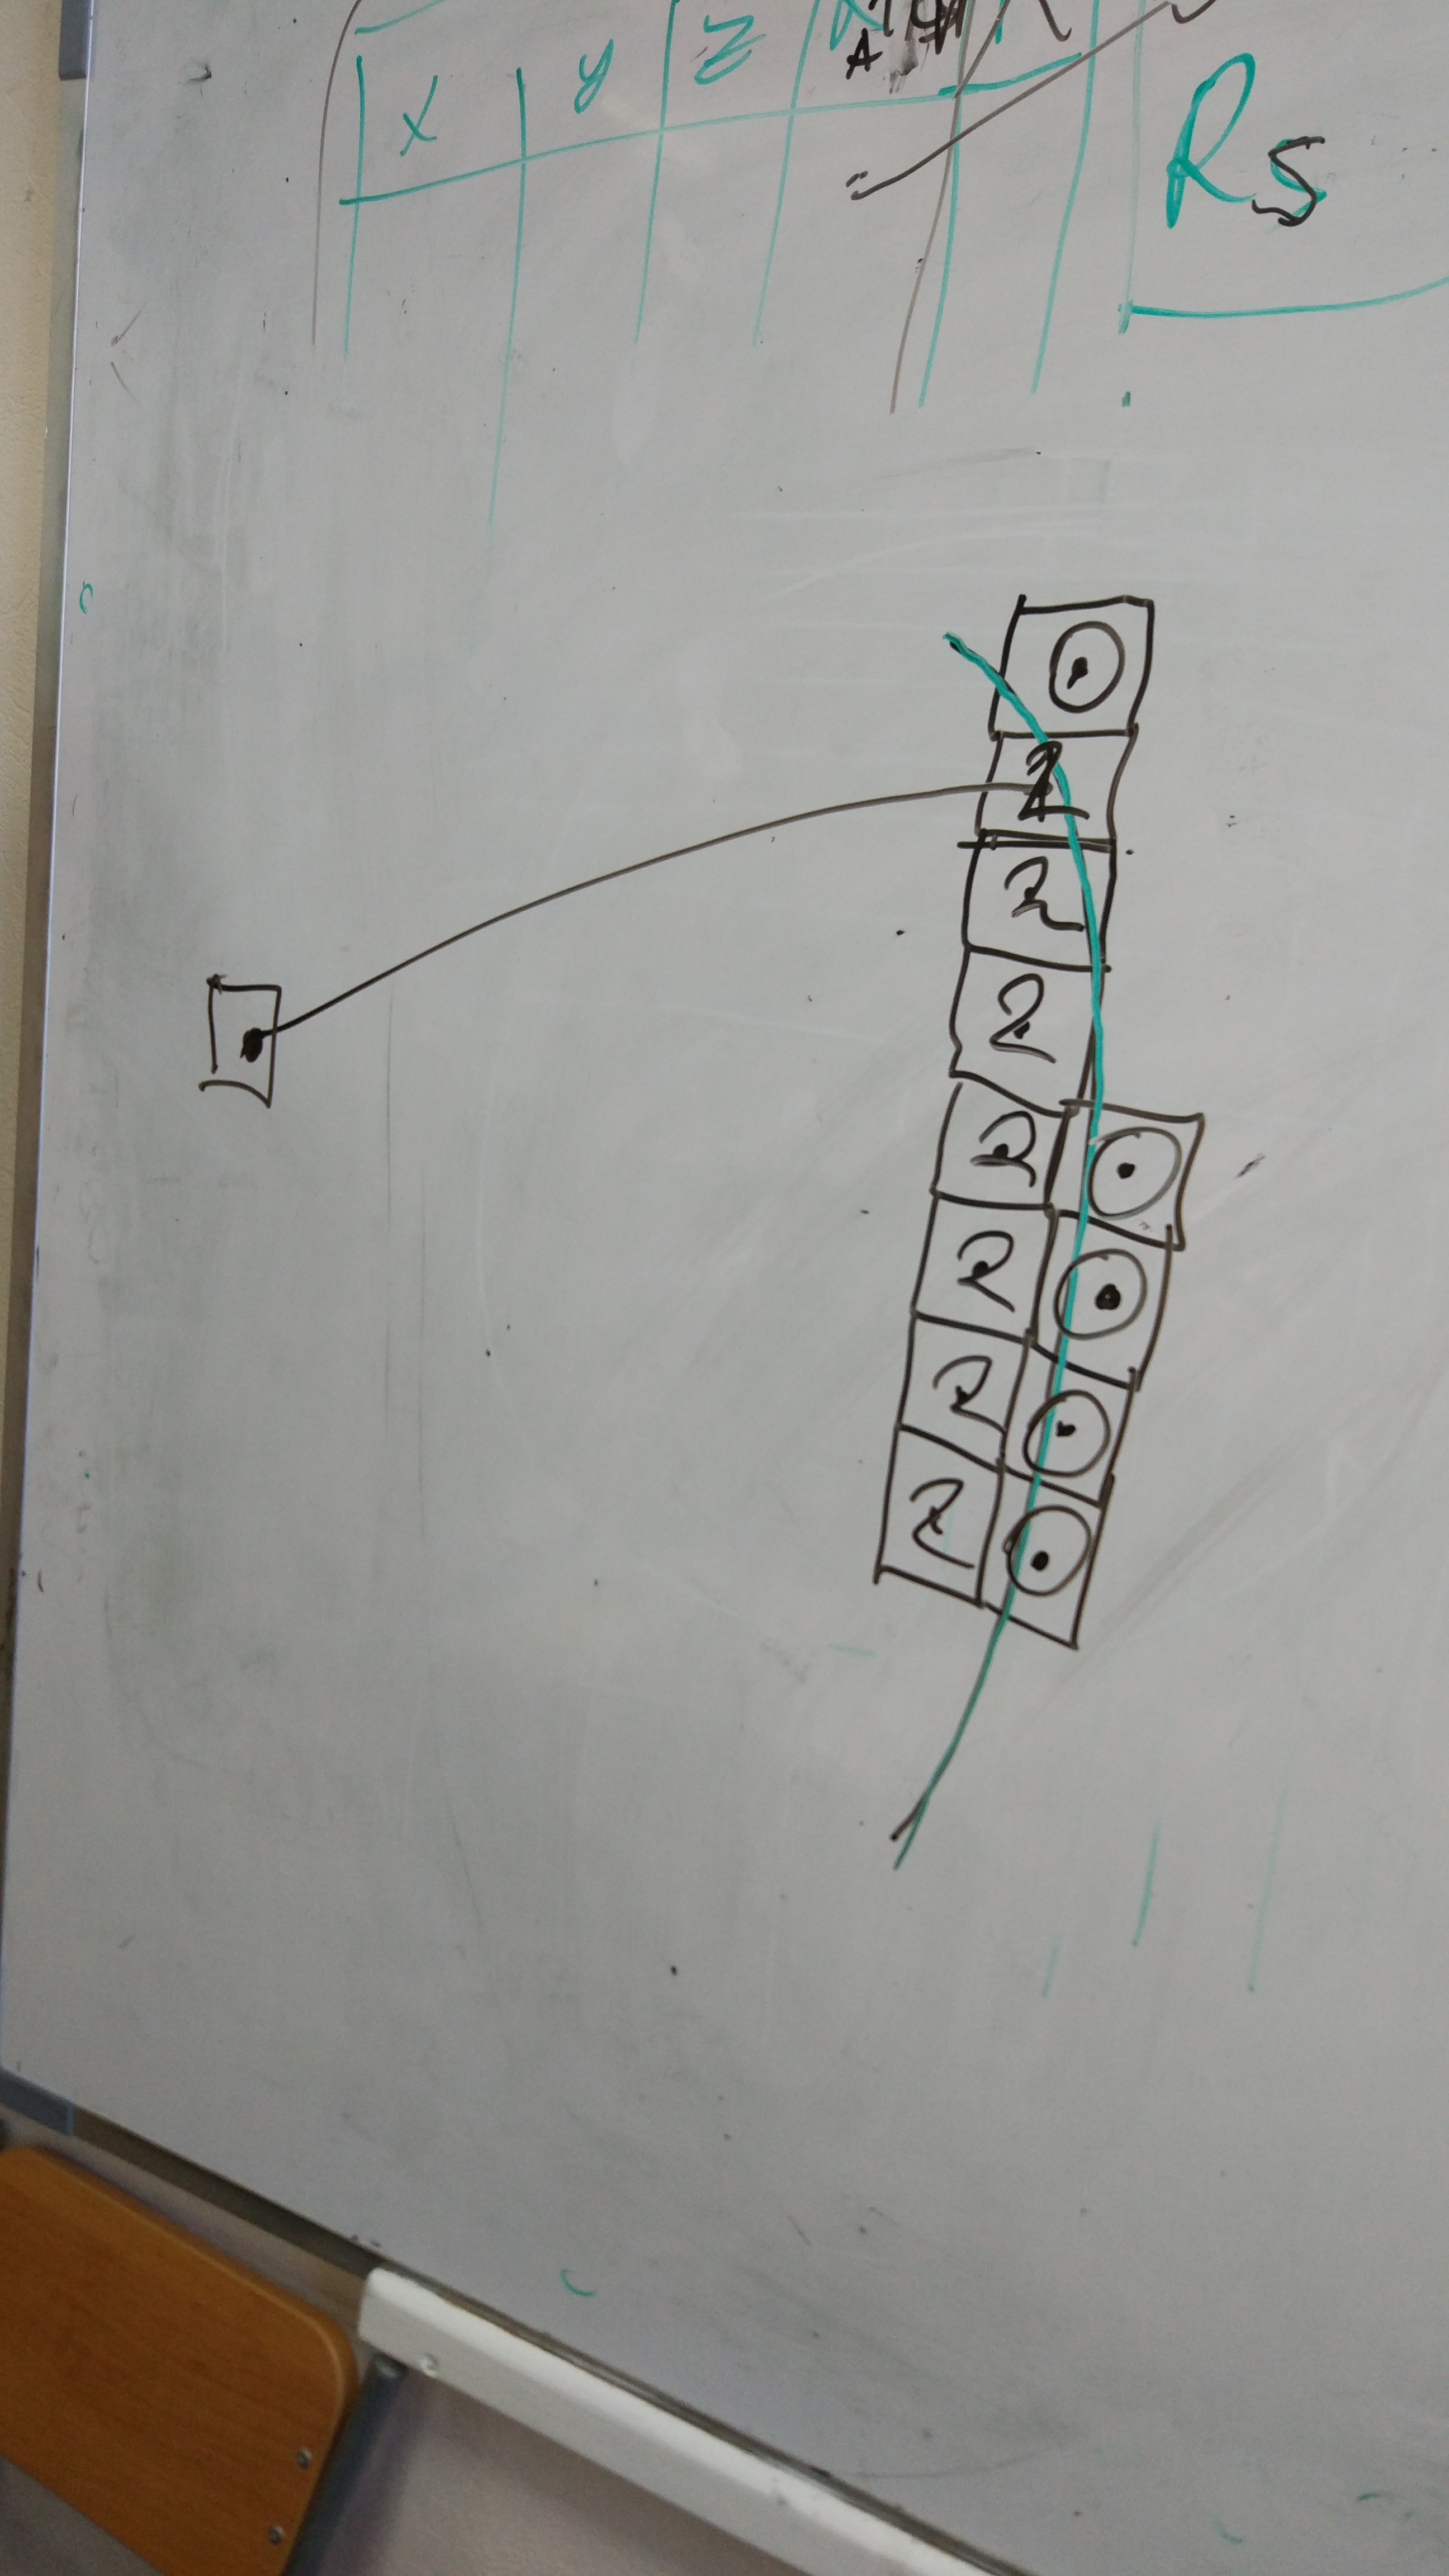 x y z
R5
2
2
2
2
2
2
2